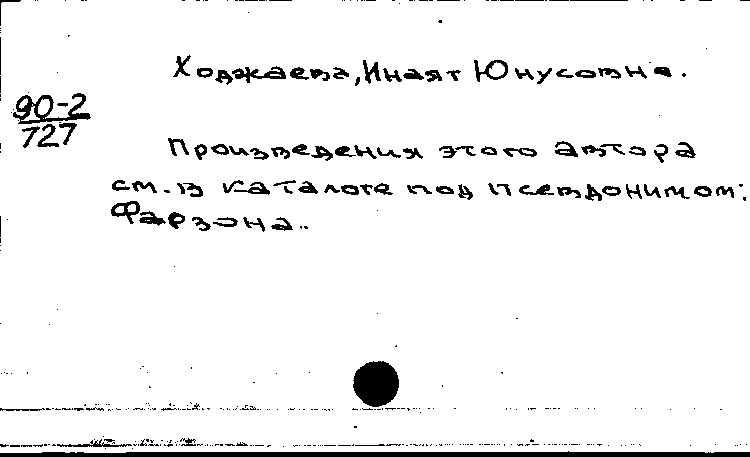 Ходжаева, Инаят Юнусовна.
90-2
727
Произведения этого автора
см. в каталоге под псевдонимом:
Фарзона.